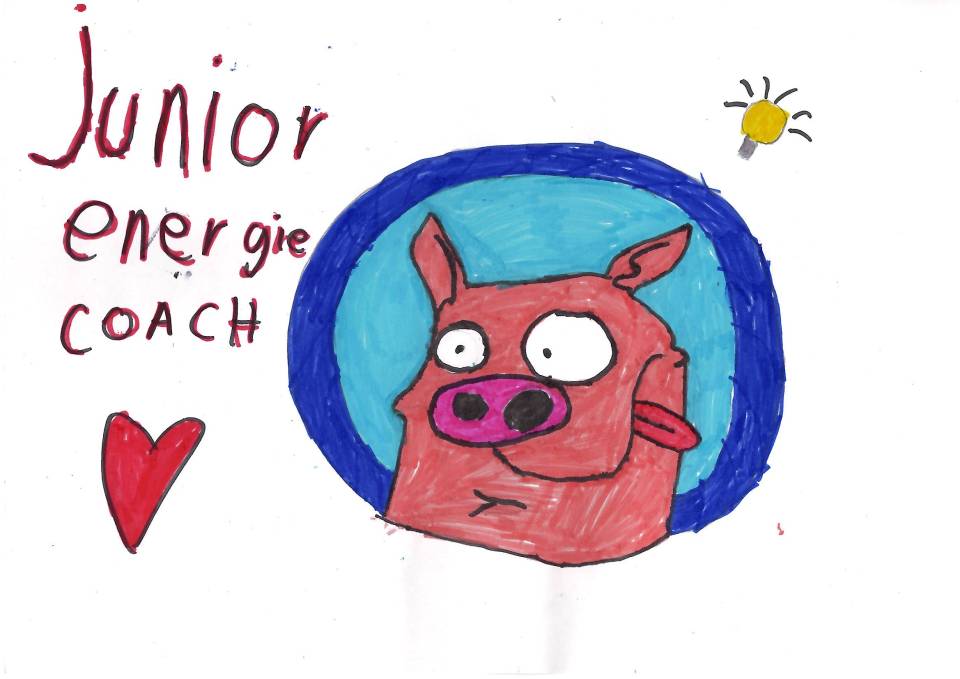 junior
energie
COACH